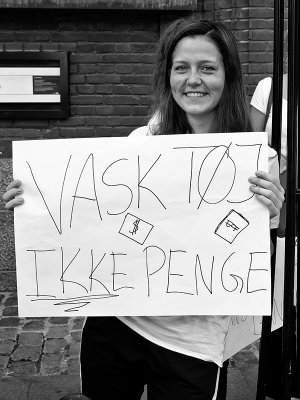 VASK TØJ
IKKE PENGE